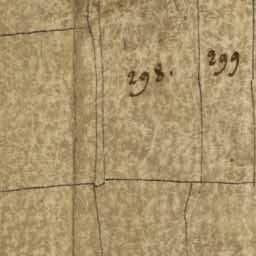 298.
299